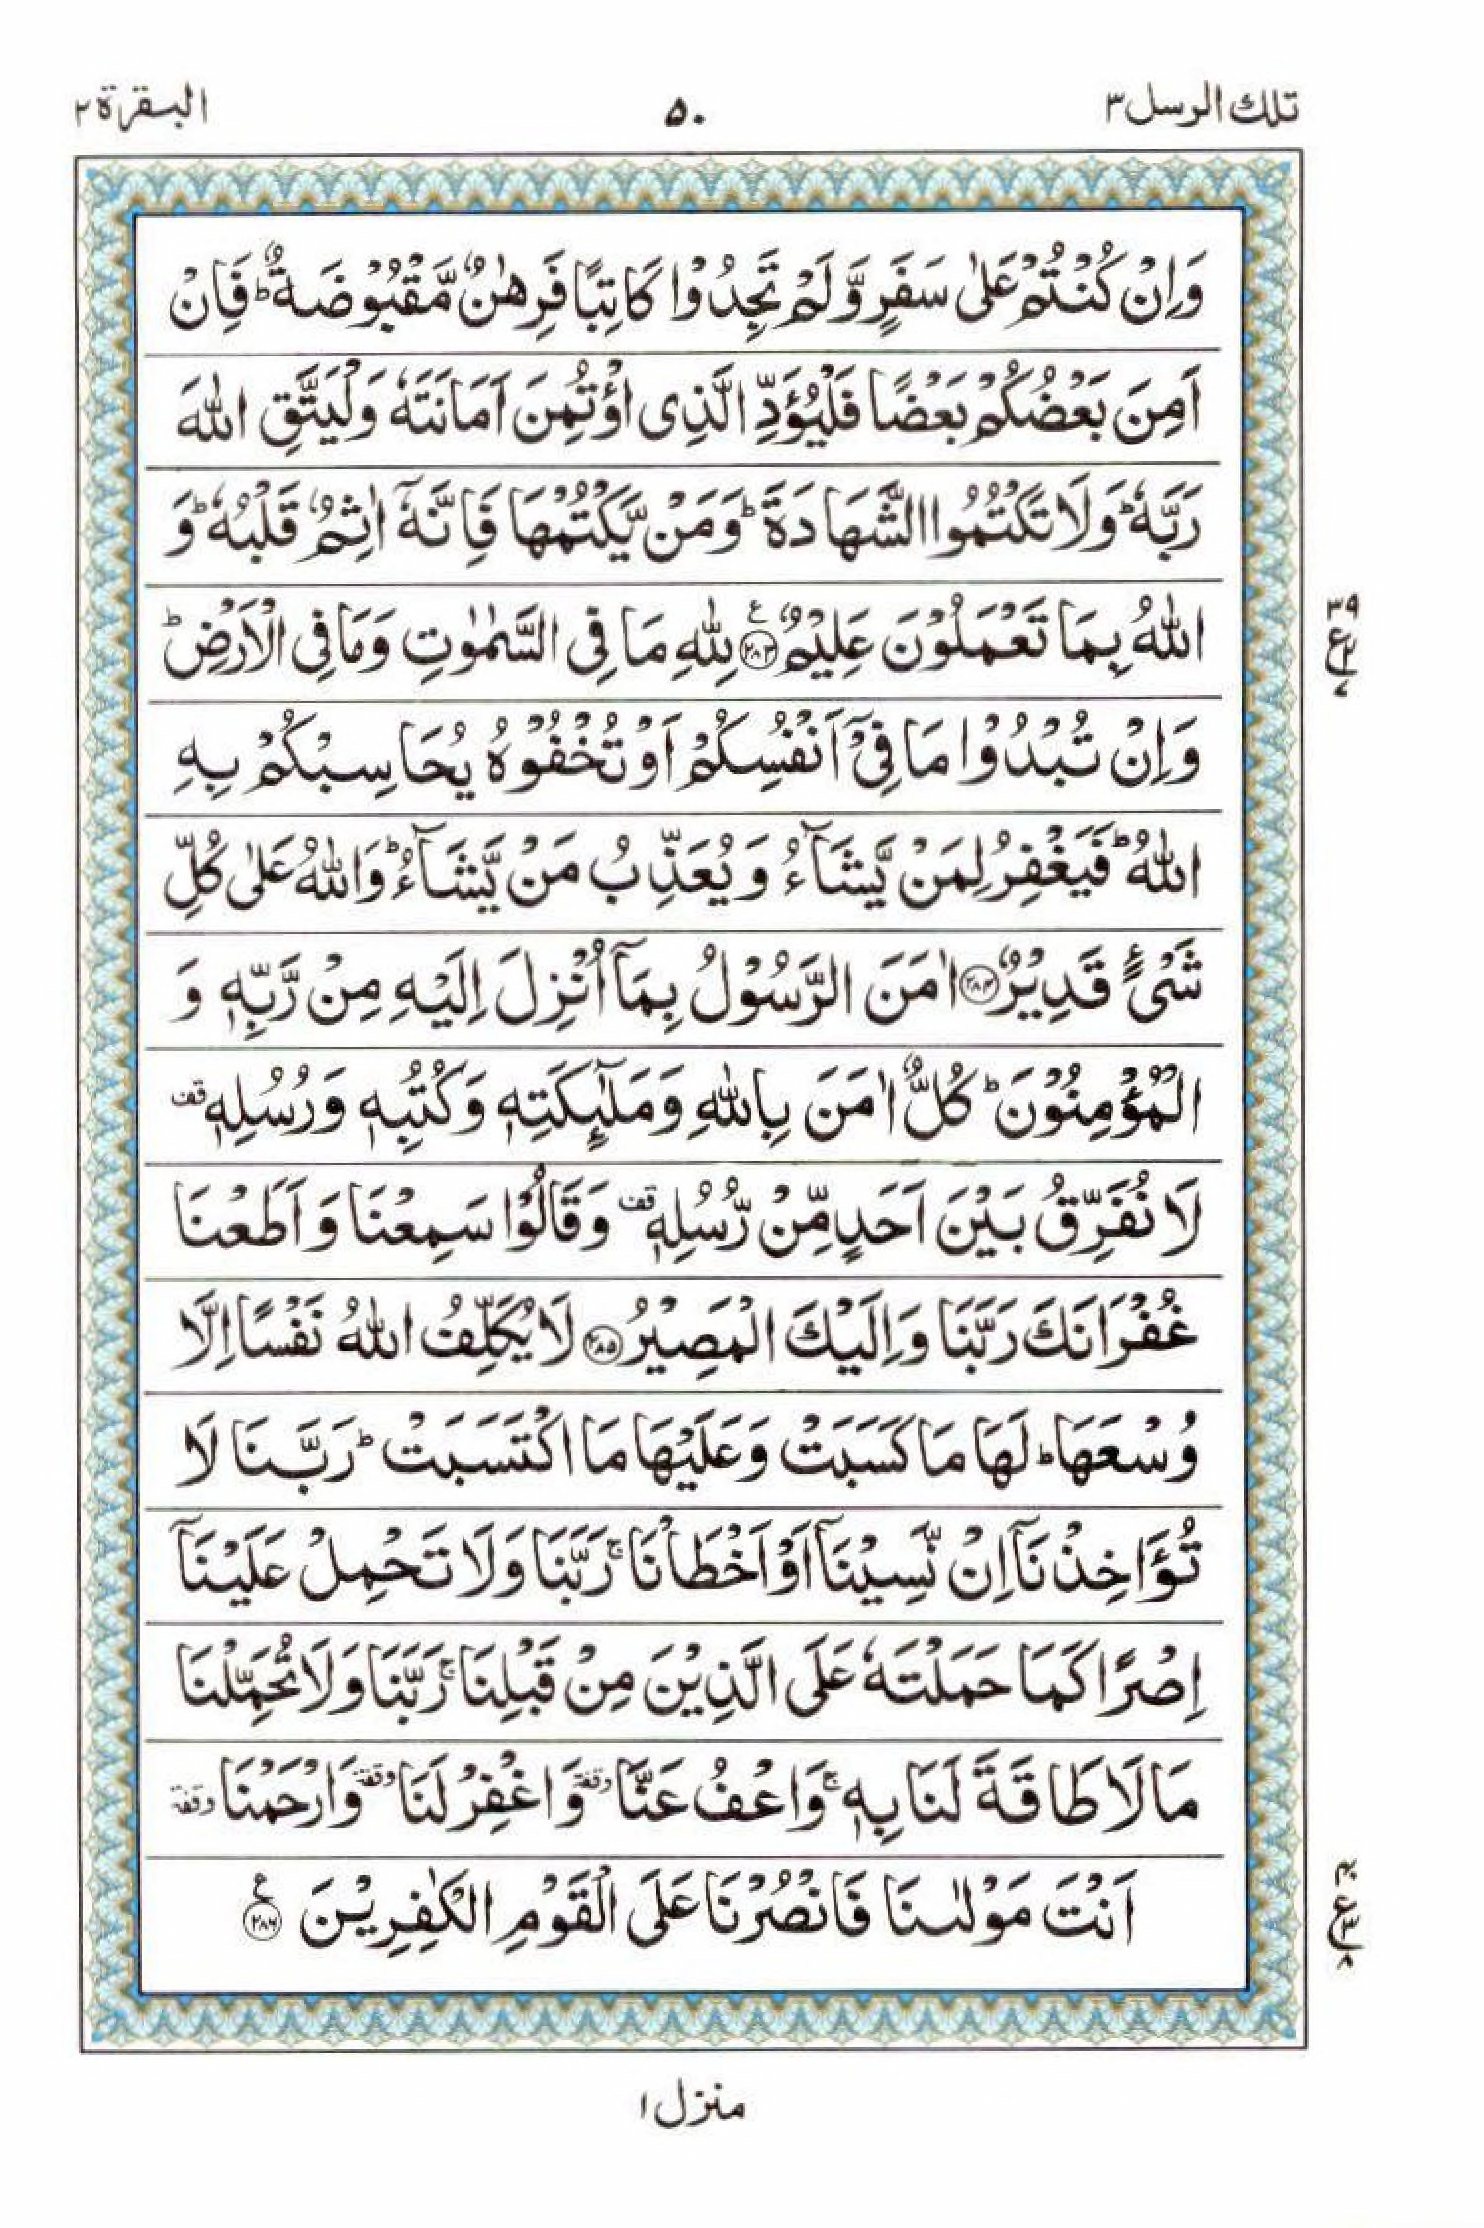 تلك الرسل ٣
٥٠
البقرة ٢
وَاِنْ كُنْتُمْ عَلٰى سَفَرٍ وَّلَمْ تَجِدُوْا كَاتِبًا فَرِهٰنٌ مَّقْبُوْضَةٌ ؕ فَاِنْ
اَمِنَ بَعْضُكُمْ بَعْضًا فَلْيُؤَدِّ الَّذِى اؤْتُمِنَ اَمَانَتَهٗ وَلْيَتَّقِ اللّٰهَ
رَبَّهٗ ؕ وَلَا تَكْتُمُوا الشَّهَادَةَ ؕ وَمَنْ يَّكْتُمْهَا فَاِنَّهٗۤ اٰثِمٌ قَلْبُهٗ ؕ وَ
اللّٰهُ بِمَا تَعْمَلُوْنَ عَلِيْمٌ ۧ‏﴿۲۸۳﴾ لِلّٰهِ مَا فِى السَّمٰوٰتِ وَمَا فِى الْاَرْضِ ؕ
وَاِنْ تُبْدُوْا مَا فِىْۤ اَنْفُسِكُمْ اَوْ تُخْفُوْهُ يُحَاسِبْكُمْ بِهِ
اللّٰهُ ؕ فَيَغْفِرُ لِمَنْ يَّشَآءُ وَيُعَذِّبُ مَنْ يَّشَآءُ ؕ وَاللّٰهُ عَلٰى كُلِّ
شَىْءٍ قَدِيْرٌ ﴿۲۸۴﴾ اٰمَنَ الرَّسُوْلُ بِمَاۤ اُنْزِلَ اِلَيْهِ مِنْ رَّبِّهٖ وَ
الْمُؤْمِنُوْنَ ؕ كُلٌّ اٰمَنَ بِاللّٰهِ وَمَلٰٓئِكَتِهٖ وَكُتُبِهٖ وَرُسُلِهٖ قف
لَا نُفَرِّقُ بَيْنَ اَحَدٍ مِّنْ رُّسُلِهٖ قف وَقَالُوْا سَمِعْنَا وَاَطَعْنَا
غُفْرَانَكَ رَبَّنَا وَاِلَيْكَ الْمَصِيْرُ ﴿۲۸۵﴾ لَا يُكَلِّفُ اللّٰهُ نَفْسًا اِلَّا
وُسْعَهَا ؕ لَهَا مَا كَسَبَتْ وَعَلَيْهَا مَا اكْتَسَبَتْ ؕ رَبَّنَا لَا
تُؤَاخِذْنَاۤ اِنْ نَّسِيْنَاۤ اَوْ اَخْطَاْنَا ۚ رَبَّنَا وَلَا تَحْمِلْ عَلَيْنَاۤ
اِصْرًا كَمَا حَمَلْتَهٗ عَلَى الَّذِيْنَ مِنْ قَبْلِنَا ۚ رَبَّنَا وَلَا تُحَمِّلْنَا
مَا لَا طَاقَةَ لَنَا بِهٖ ۚ وَاعْفُ عَنَّا وقفة وَاغْفِرْ لَنَا وقفة وَارْحَمْنَا وقفة
اَنْتَ مَوْلٰىنَا فَانْصُرْنَا عَلَى الْقَوْمِ الْكٰفِرِيْنَ ۧ ﴿۲۸۶﴾
٣٩
ع
٢
٧
٤٠
ع
٣
٨
منزل ١